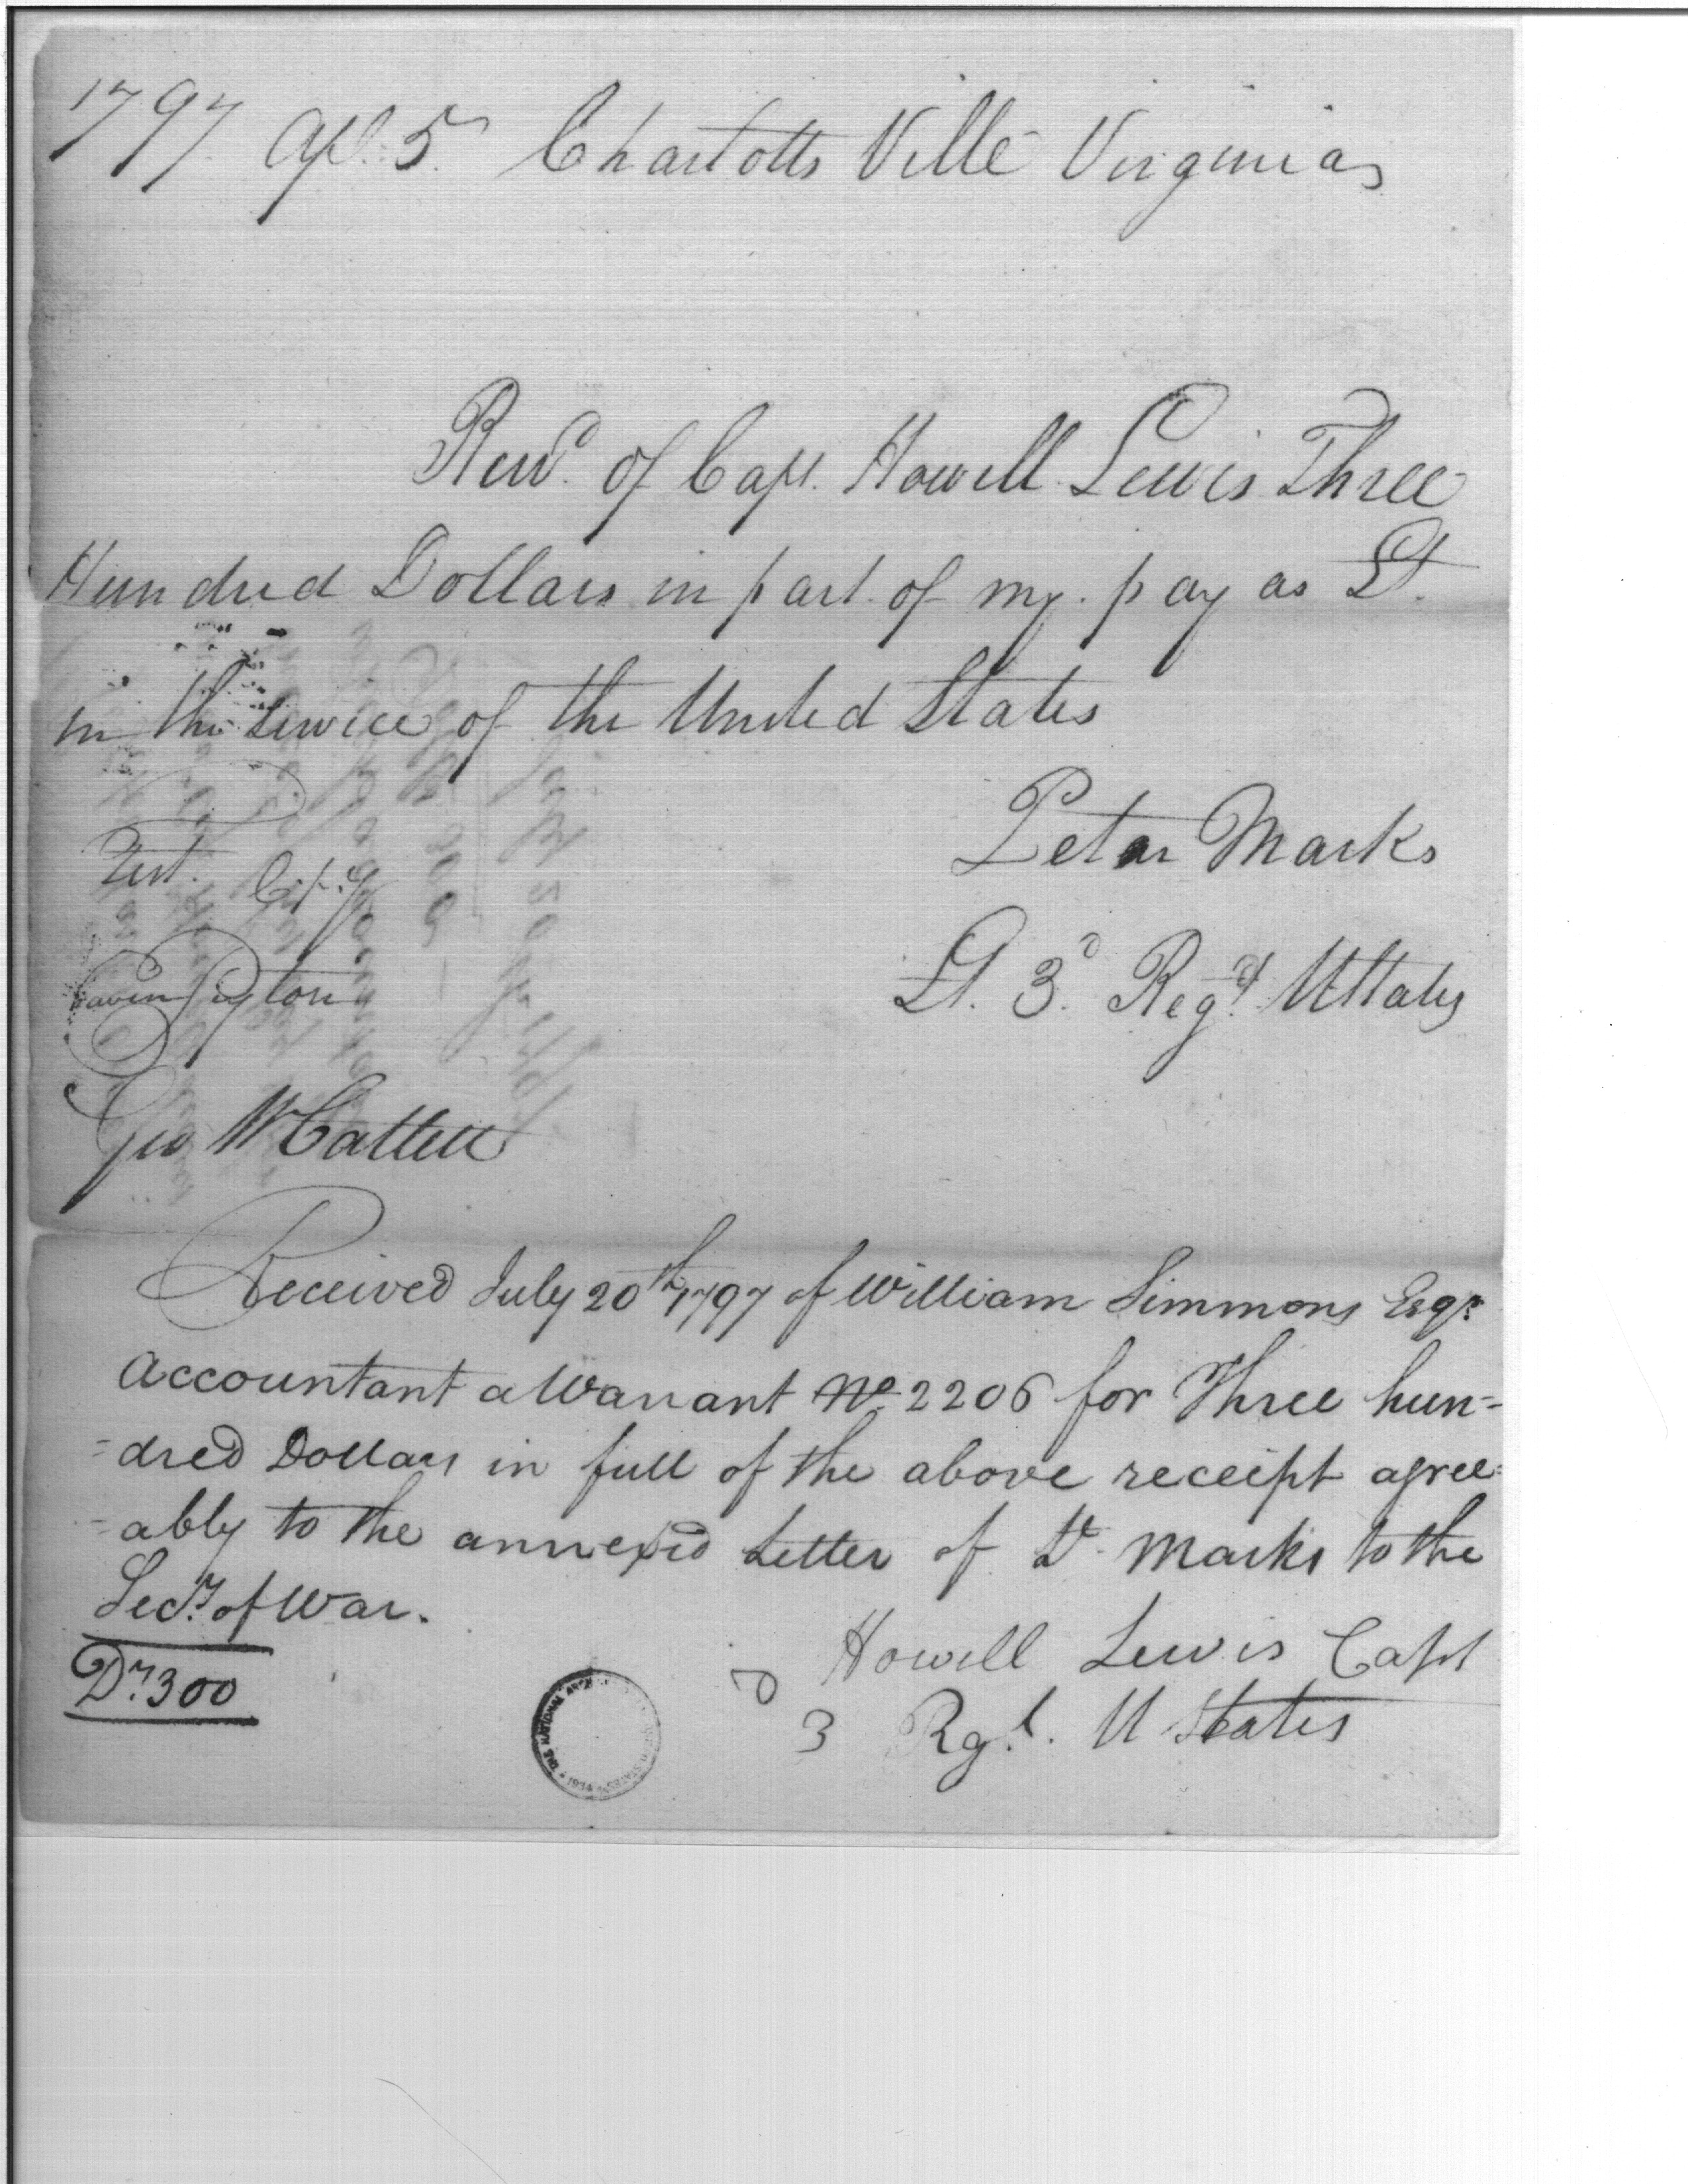 1797 Apl. 5 Charlotts Ville Virginia
Recvd. of Capt. Howell Lewis Three
Hundred Dollars in part of my pay as Lt.
in the Service of the United States
Petar Marks
Lt. 3d. Regt. UStates
Test.
Geo W Catlett
Received July 20th 1797 of William Simmons Esqr.
Accountant a Warrant No. 2206 for Three hun=
=dred Dollars in full of the above receipt agree=
=ably to the annexed Letter of Lt. Marks to the
Secy. of War.
Howell Lewis Capt
Drs. 300
3d Rgt. U States
THE NATIONAL
1934